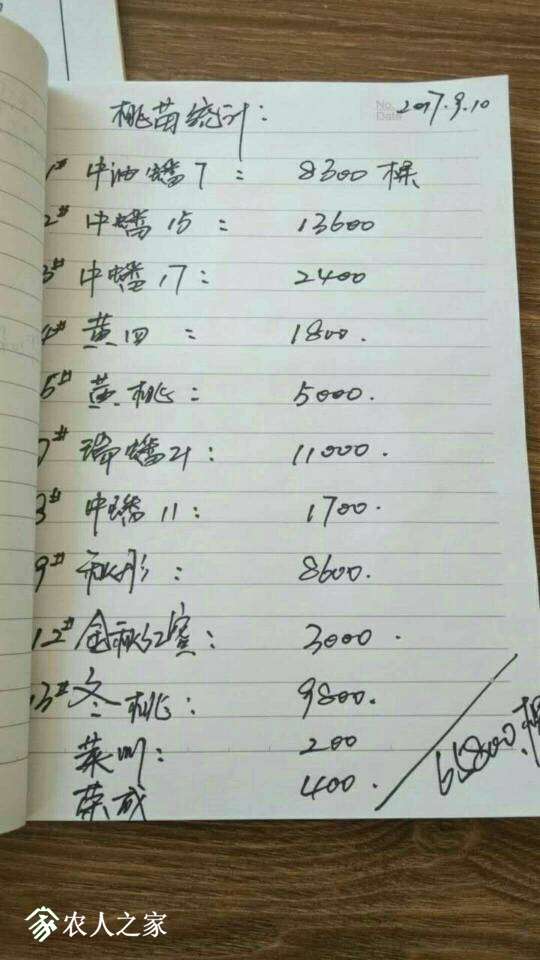 桃苗统计:
No.
Date 2017.9.10
1# 中油蟠7: 8300棵
2# 中蟠15: 13600
3# 中蟠17: 2400
4# 黄四: 1800.
5# 黄桃: 5000.
7# 瑞蟠21: 11000.
8# 中蟠11: 1700.
9# 秋彤: 8600.
12# 金秋红蜜: 3000.
13# 冬桃: 9800.
莱州: 200
荣成 400.
65800.棵
农人之家